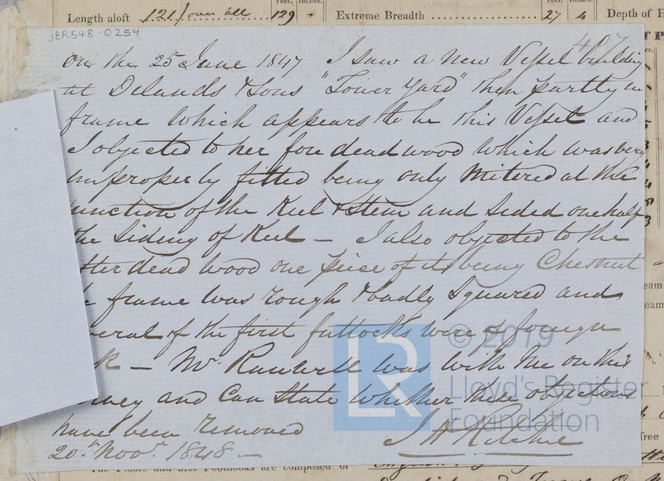 Length aloft 121/over all 129 - Extreme Breadth 27 4 Depth of H
JER548-0254
On the 25 June 1847 I saw a new Vessel building
at Delands & Sons "Tower Yard" then partly in
frame which appears to be this Vessel and
I objected to her fore dead wood which was very
improperly fitted being only Mitered at the
unction of the Keel & Stem and sided one half
the siding of Keel - I also objected to the
fter dead wood one piece of it being Chesnut
frame was rough & badly squared and
veral of the first futtocks were of foreign
k - Mr was with me on this
vey and can state whether these objections
have been removed
20th Novr. 1848 - J H Ritchie
© 2019
LR
Lloyd's Register
Foundation
The Floors and first Foothooks are composed of